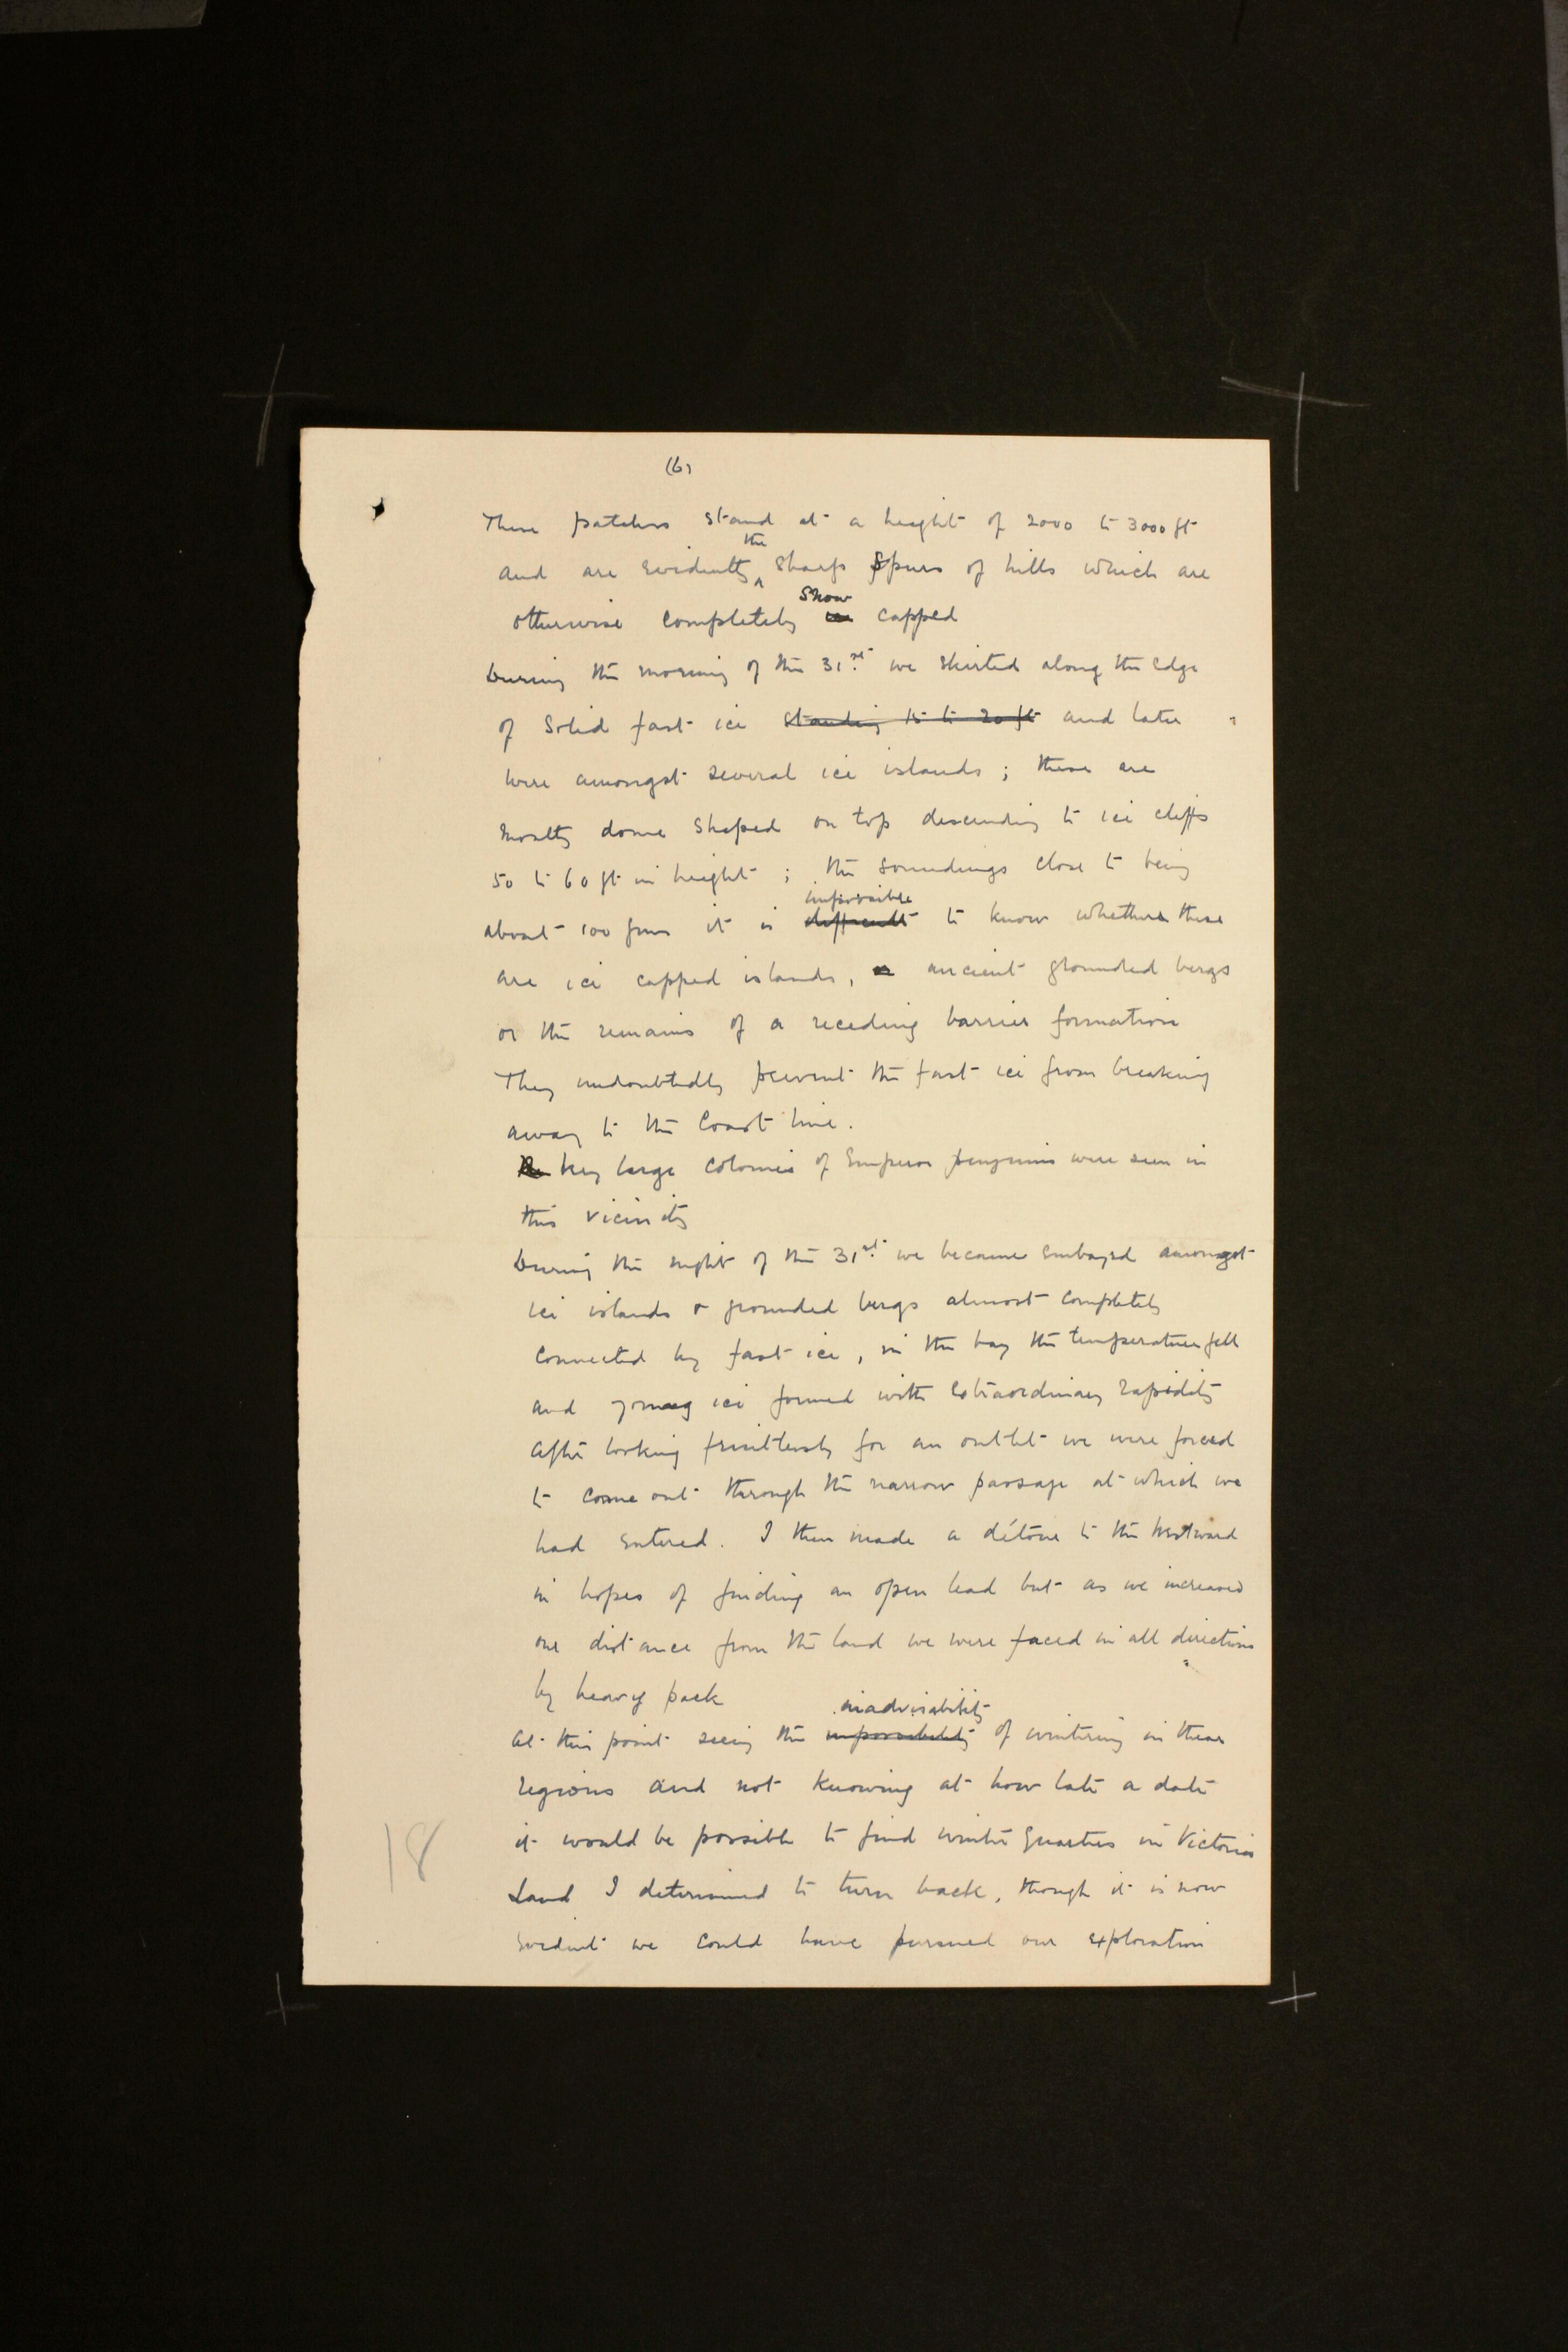 (6)
These patches stand at a height of 2000 to 3000 ft
the
and are evidently ^ sharp spurs of hills which are
snow
otherwise completely ice capped
During the morning of the 31st we skirted along the edge
of solid fast ice standing 15 to 20 ft and later
were amongst several ice islands ; these are
mostly dome shaped on top descending to ice cliffs
50 to 60 ft in height ; the soundings close to being
impossible
about 100 fms it is difficult to know whether these
are ice capped islands, or ancient grounded bergs
or the remains of a receding barrier formation
They undoubtedly prevent the fast ice from breaking
away to the coast line.
Very large colonies of Emperor penguins were seen in
this vicinity
During the night of the 31st we became embayed amongst
ice islands & grounded bergs almost completely
connected by fast ice, in the bay the temperature fell
and young ice formed with extraordinary rapidity
After looking fruitlessly for an outlet we were forced
to come out through the narrow passage at which we
had entered. I then made a détour to the westward
in hopes of finding an open lead but as we increased
our distance from the land we were faced in all directions
by heavy pack
inadvisability
At this point seeing the impossibility of wintering in these
regions and not knowing at how late a date
it would be possible to find winter quarters in Victoria
Land I determined to turn back, though it is now
evident we could have pursued our exploration
18